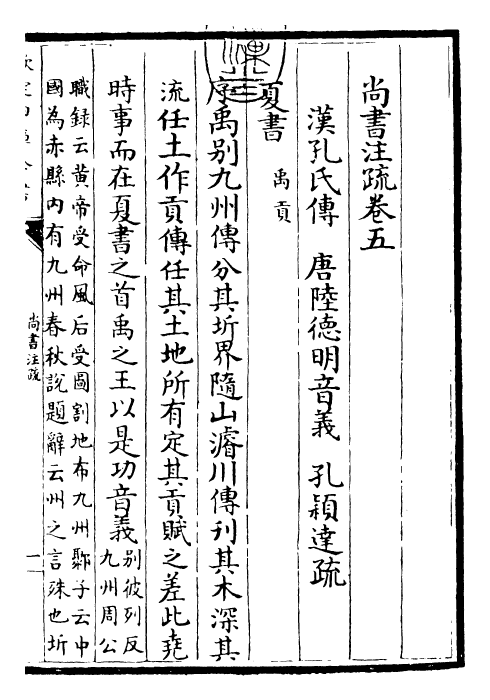 尚書注疏卷五
漢孔氏傳　唐陸德明音義　孔穎達疏
夏書　禹貢
序禹别九州傳分其圻界隨山濬川傳刊其木深其
流任土作貢傳任其土地所有定其貢賦之差此堯
時事而在夏書之首禹之王以是功音義
别彼列反
九州周公
職録云黄帝受命風后受圖割地布九州鄹子云中
國為赤縣内有九州春秋說題辭云州之言殊也圻
尚書注疏
一